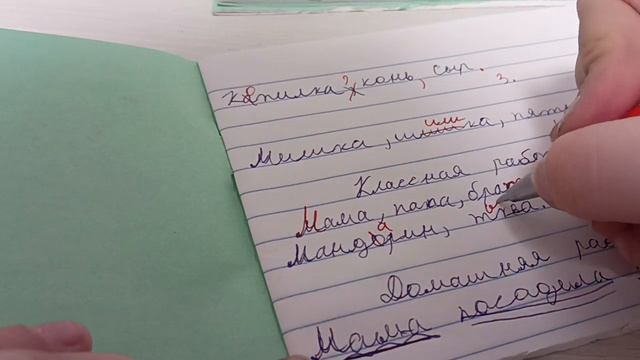 капилка, конь, сыр.
3.
Мишка, шишка, пять
Классная рабо
Мама, папа, брат
Мандарин, тыква.
Домашняя ра
Мама посадила